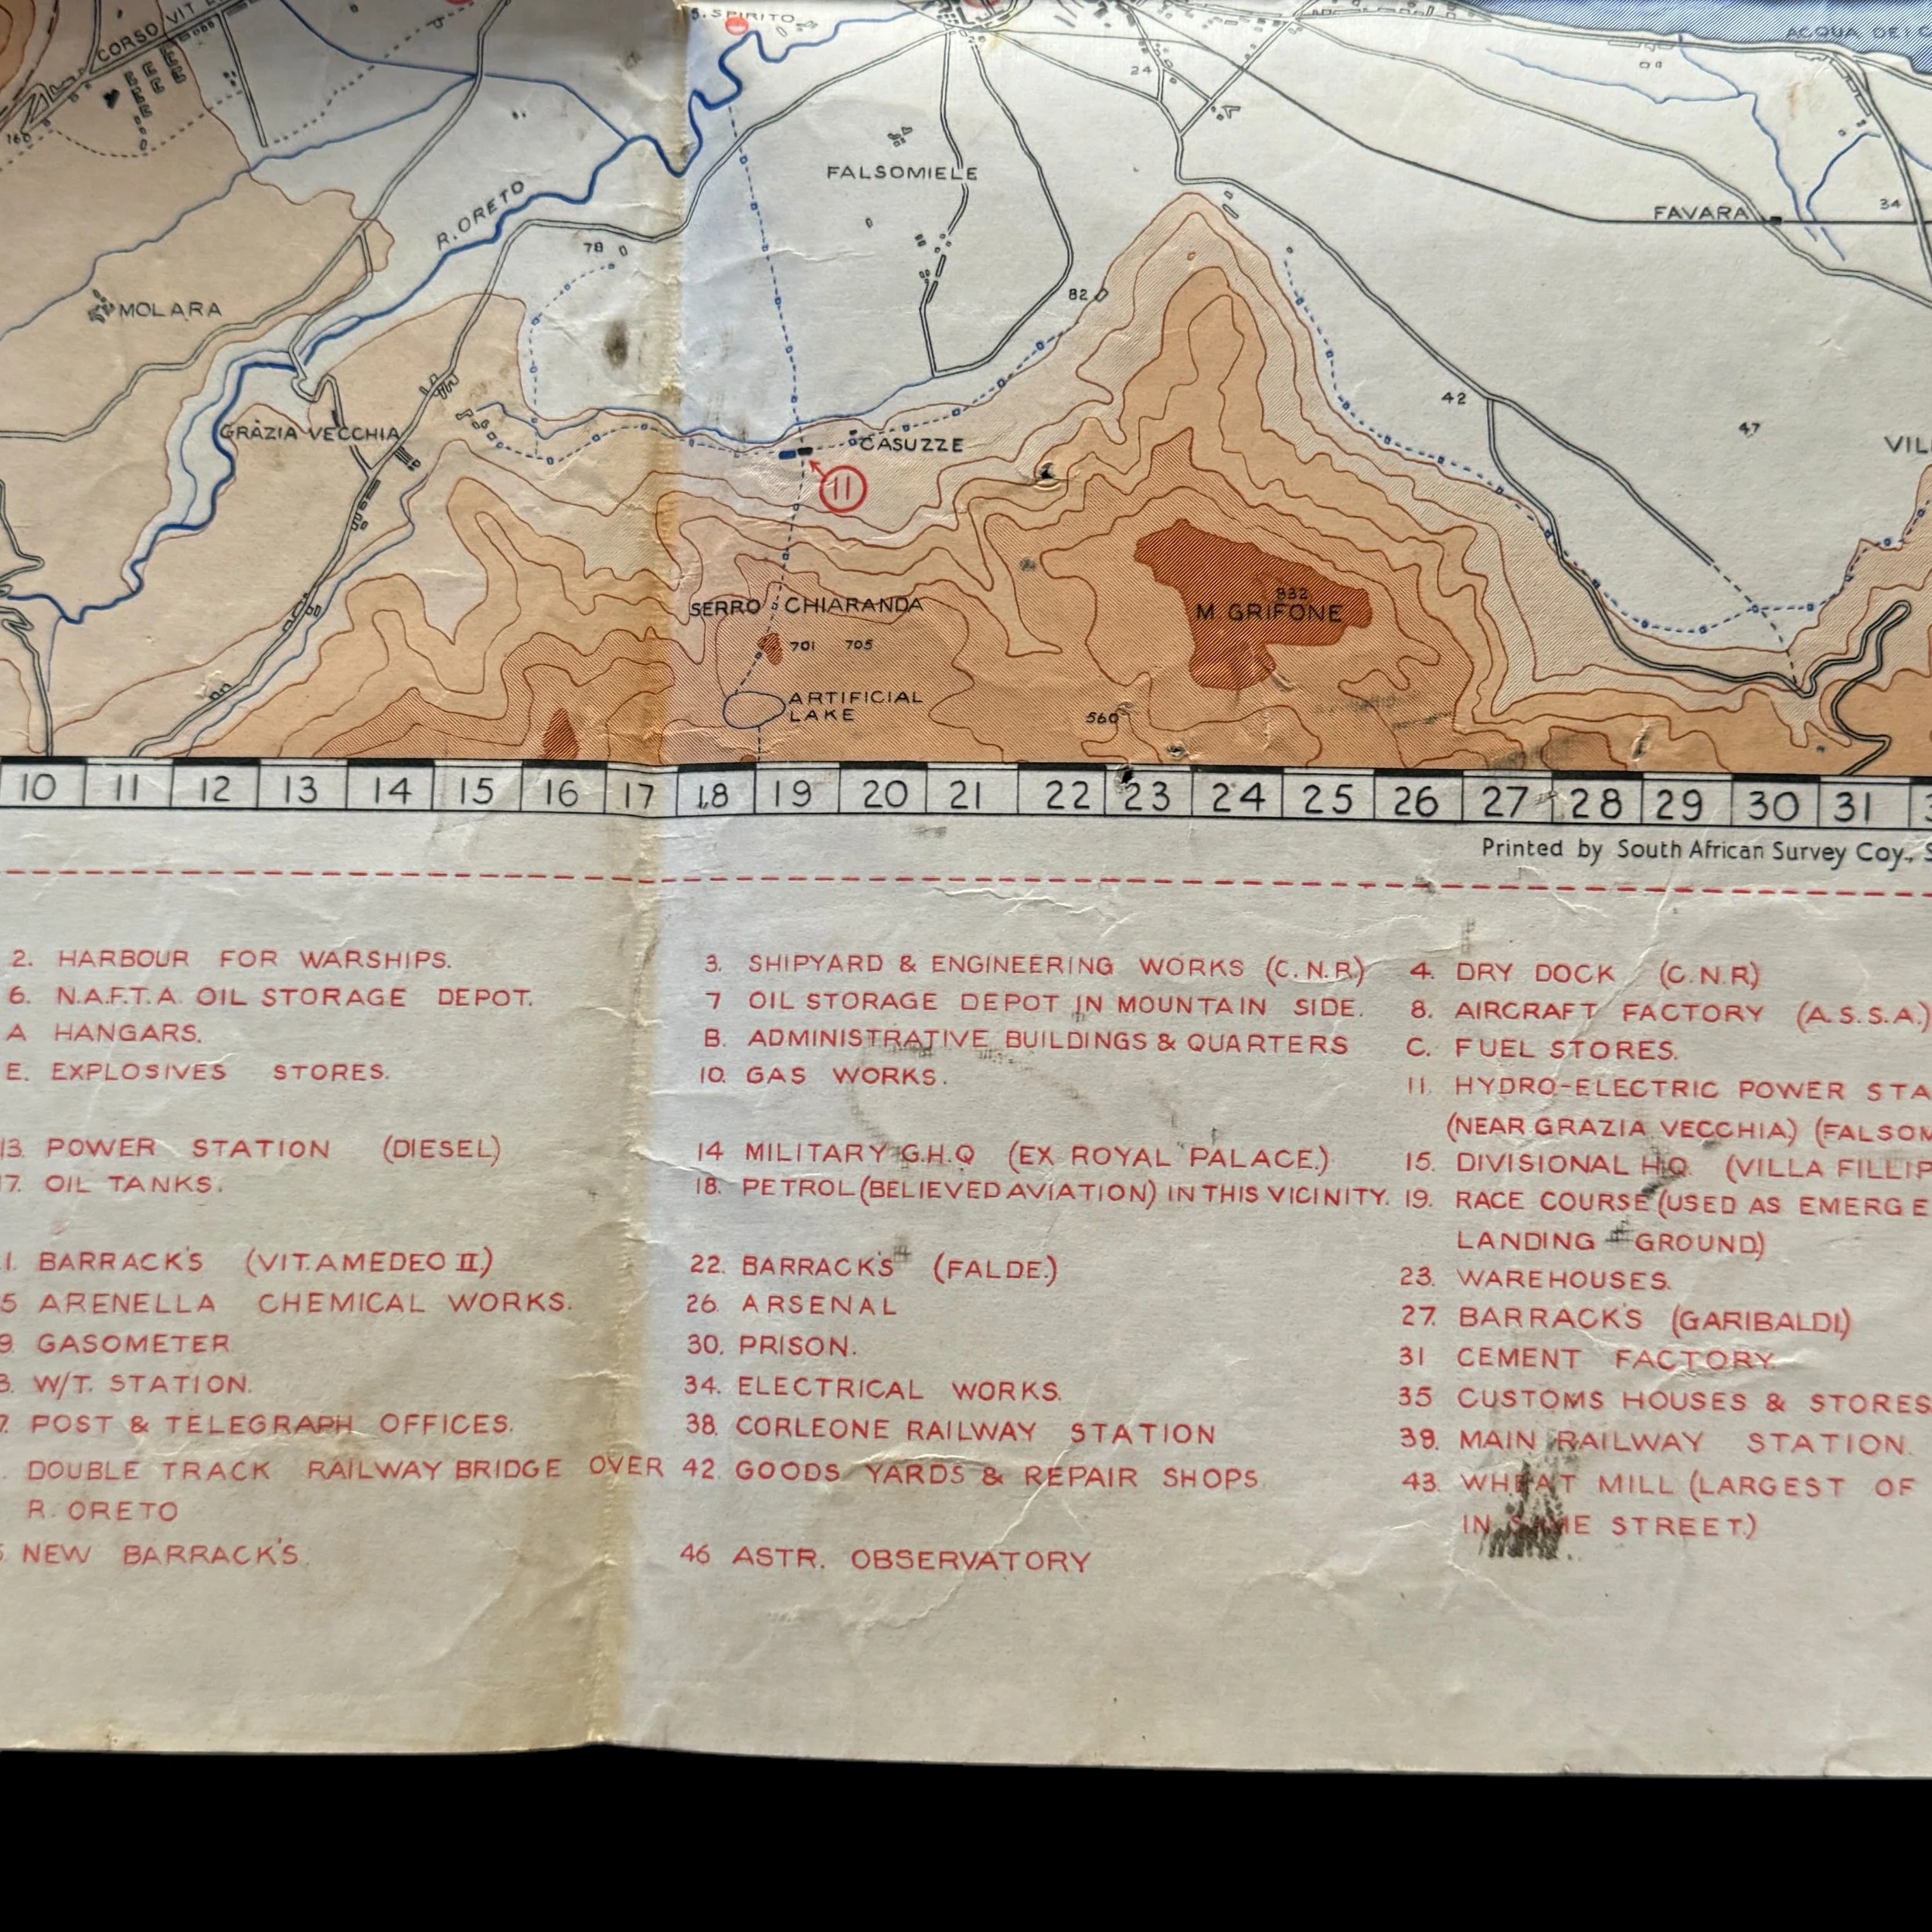 CORSO VIT
S. SPIRITO
ACQUA DEI C
160
24
FALSOMIELE
R. ORETO
FAVARA
34
78
MOLARA
82
42
47
GRAZIA VECCHIA
CASUZZE
VIL
11
932
SERRO CHIARANDA
M GRIFONE
701 705
ARTIFICIAL
LAKE
560
10 11 12 13 14 15 16 17 18 19 20 21 22 23 24 25 26 27 28 29 30 31
Printed by South African Survey Coy., S
2. HARBOUR FOR WARSHIPS. 3. SHIPYARD & ENGINEERING WORKS (C.N.R) 4. DRY DOCK (C.N.R)
6. N.A.F.T.A. OIL STORAGE DEPOT. 7 OIL STORAGE DEPOT IN MOUNTAIN SIDE. 8. AIRCRAFT FACTORY (A.S.S.A.)
A HANGARS. B. ADMINISTRATIVE BUILDINGS & QUARTERS C. FUEL STORES.
E. EXPLOSIVES STORES. 10. GAS WORKS. 11. HYDRO-ELECTRIC POWER STA
(NEAR GRAZIA VECCHIA) (FALSOM
13. POWER STATION (DIESEL) 14 MILITARY G.H.Q (EX ROYAL PALACE.) 15. DIVISIONAL H.Q. (VILLA FILLIP
17. OIL TANKS. 18. PETROL (BELIEVED AVIATION) IN THIS VICINITY. 19. RACE COURSE (USED AS EMERGE
LANDING GROUND)
1. BARRACK'S (VIT. AMEDEO II.) 22. BARRACK'S (FALDE.) 23. WAREHOUSES.
5 ARENELLA CHEMICAL WORKS. 26. ARSENAL 27. BARRACK'S (GARIBALDI.)
9. GASOMETER 30. PRISON. 31 CEMENT FACTORY.
3. W/T. STATION. 34. ELECTRICAL WORKS. 35 CUSTOMS HOUSES & STORES
7. POST & TELEGRAPH OFFICES. 38. CORLEONE RAILWAY STATION 39. MAIN RAILWAY STATION.
. DOUBLE TRACK RAILWAY BRIDGE OVER 42. GOODS YARDS & REPAIR SHOPS. 43. WHEAT MILL (LARGEST OF
R. ORETO IN SAME STREET.)
NEW BARRACK'S. 46 ASTR. OBSERVATORY